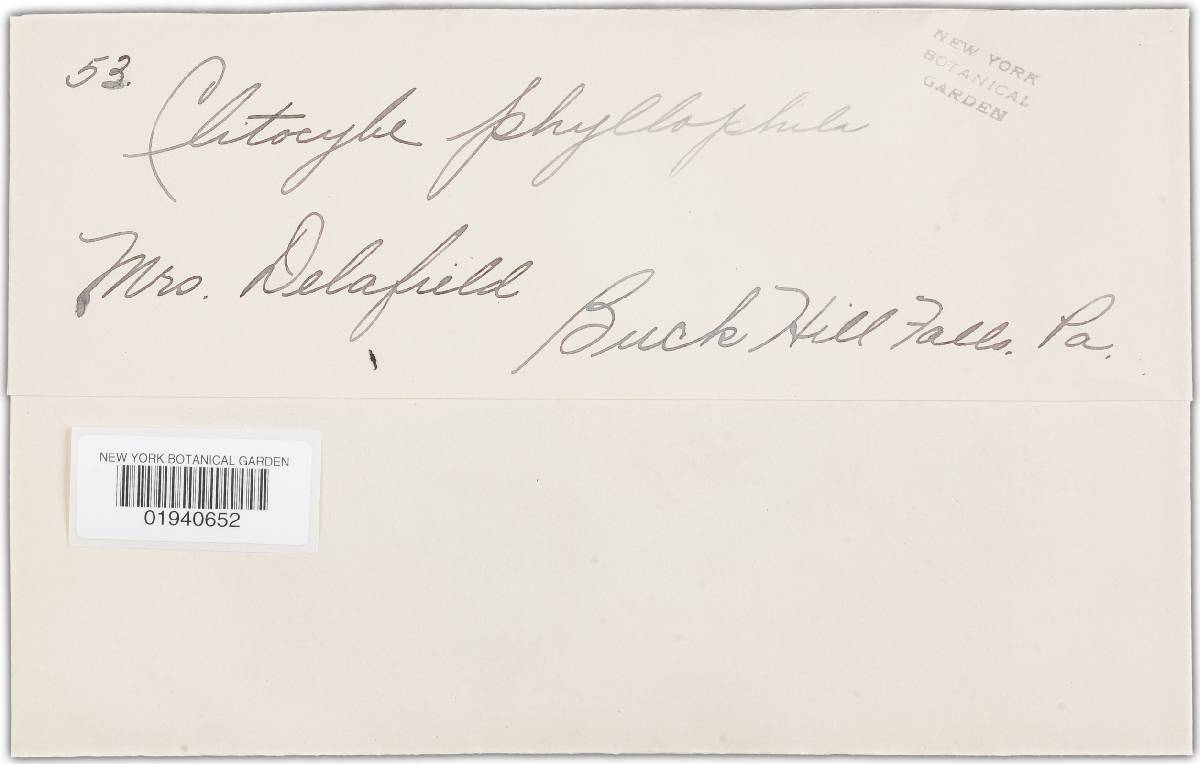 53.
NEW YORK
BOTANICAL
GARDEN
Clitocybe phyllophila
Mrs. Delafield
Buck Hill Falls. Pa.
NEW YORK BOTANICAL GARDEN
01940652